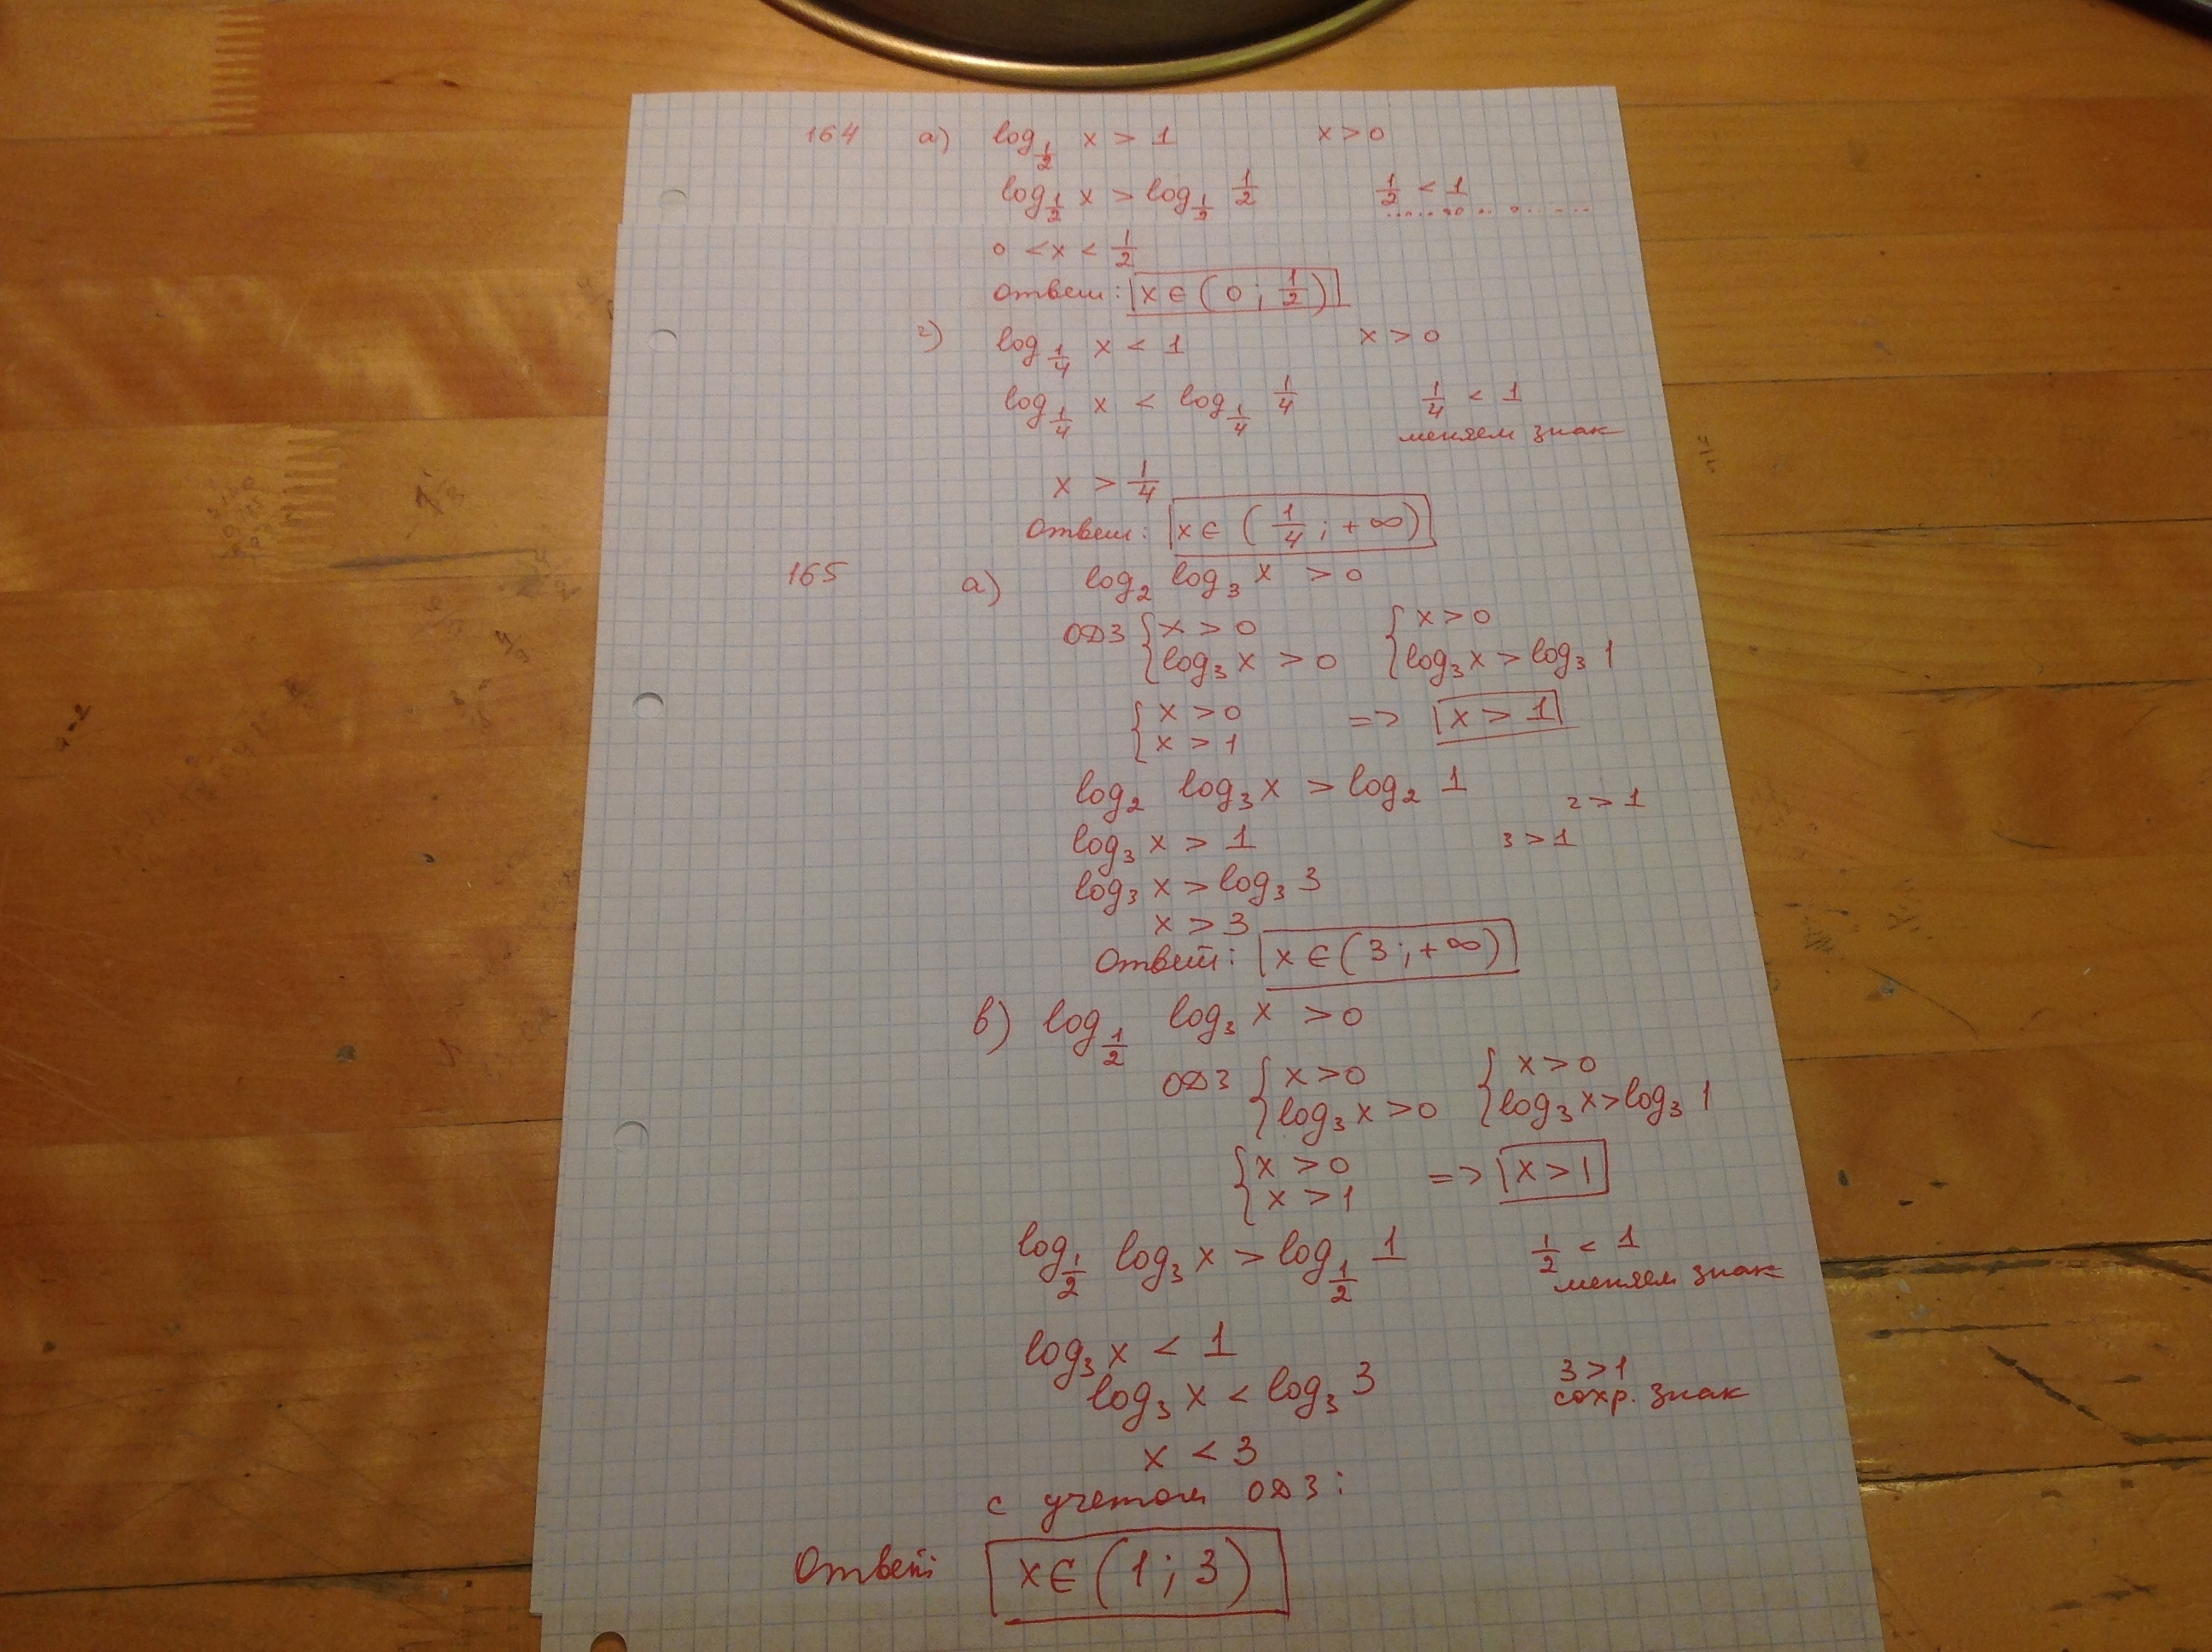 164 а) log_{1/2} x > 1 x > 0
log_{1/2} x > log_{1/2} 1/2 1/2 < 1
0 < x < 1/2
Ответ: x ∈ (0; 1/2)
г) log_{1/4} x < 1 x > 0
log_{1/4} x < log_{1/4} 1/4 1/4 < 1
меняем знак
x > 1/4
Ответ: x ∈ (1/4; +∞)
165 а) log₂ log₃ x > 0
ОДЗ { x > 0 { x > 0
{ log₃ x > 0 { log₃ x > log₃ 1
{ x > 0 => x > 1
{ x > 1
log₂ log₃ x > log₂ 1 2 > 1
log₃ x > 1 3 > 1
log₃ x > log₃ 3
x > 3
Ответ: x ∈ (3; +∞)
в) log_{1/2} log₃ x > 0
ОДЗ { x > 0 { x > 0
{ log₃ x > 0 { log₃ x > log₃ 1
{ x > 0 => x > 1
{ x > 1
log_{1/2} log₃ x > log_{1/2} 1 1/2 < 1
меняем знак
log₃ x < 1 3 > 1
log₃ x < log₃ 3 сохр. знак
x < 3
с учетом ОДЗ:
Ответ: x ∈ (1; 3)